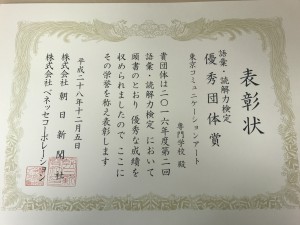 表彰状
語彙・読解力検定
優秀団体賞
東京コミュニケーションアート
専門学校 殿
貴団体は二〇一六年度第二回
語彙・読解力検定 において
頭書のとおり 優秀な成績を
収められましたので ここに
その栄誉を称え表彰します
平成二十八年十二月五日
株式会社 朝日新聞社
株式会社 ベネッセコーポレーション